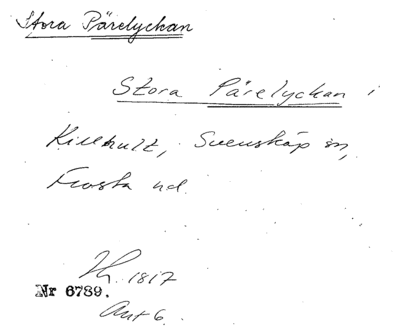 Stora Pärelyckan
Stora Pärelyckan i
Killhult, Svensköp sn,
Frosta hd.
1817
Nr 6789.
Akt 6